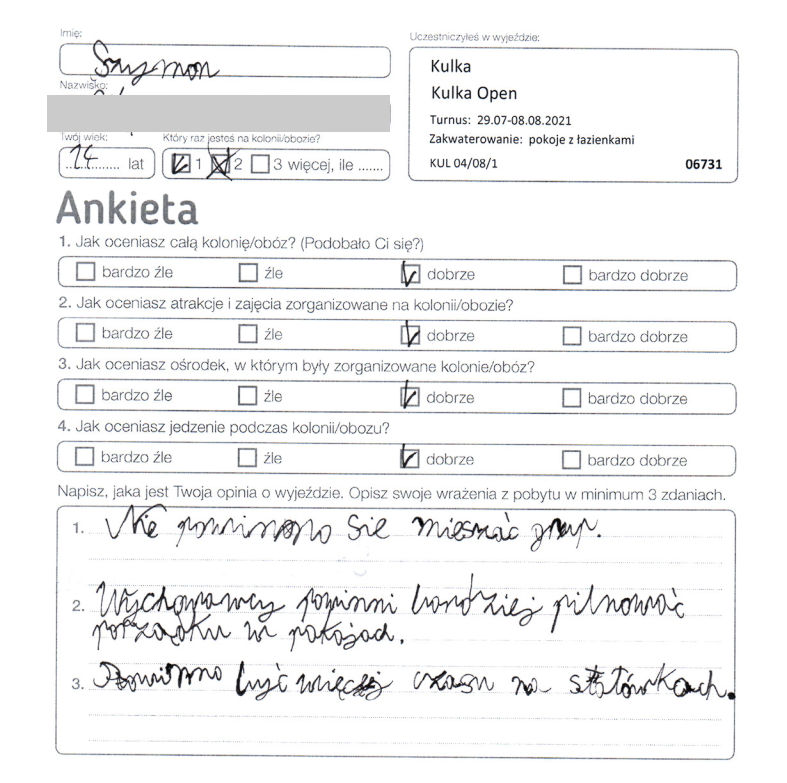 Imię:
Szymon
Nazwisko:
Twój wiek:
14 lat
Który raz jesteś na kolonii/obozie?
1 2 3 więcej, ile .......
Uczestniczyłeś w wyjeździe:
Kulka
Kulka Open
Turnus: 29.07-08.08.2021
Zakwaterowanie: pokoje z łazienkami
KUL 04/08/1 06731
Ankieta
1. Jak oceniasz całą kolonię/obóz? (Podobało Ci się?)
bardzo źle źle dobrze bardzo dobrze
2. Jak oceniasz atrakcje i zajęcia zorganizowane na kolonii/obozie?
bardzo źle źle dobrze bardzo dobrze
3. Jak oceniasz ośrodek, w którym były zorganizowane kolonie/obóz?
bardzo źle źle dobrze bardzo dobrze
4. Jak oceniasz jedzenie podczas kolonii/obozu?
bardzo źle źle dobrze bardzo dobrze
Napisz, jaka jest Twoja opinia o wyjeździe. Opisz swoje wrażenia z pobytu w minimum 3 zdaniach.
1. Nie powinno się mieszać grup.
2. Wychowawcy powinni bardziej pilnować
porządku w pokojach.
3. Powinno być więcej czasu na stołówkach.